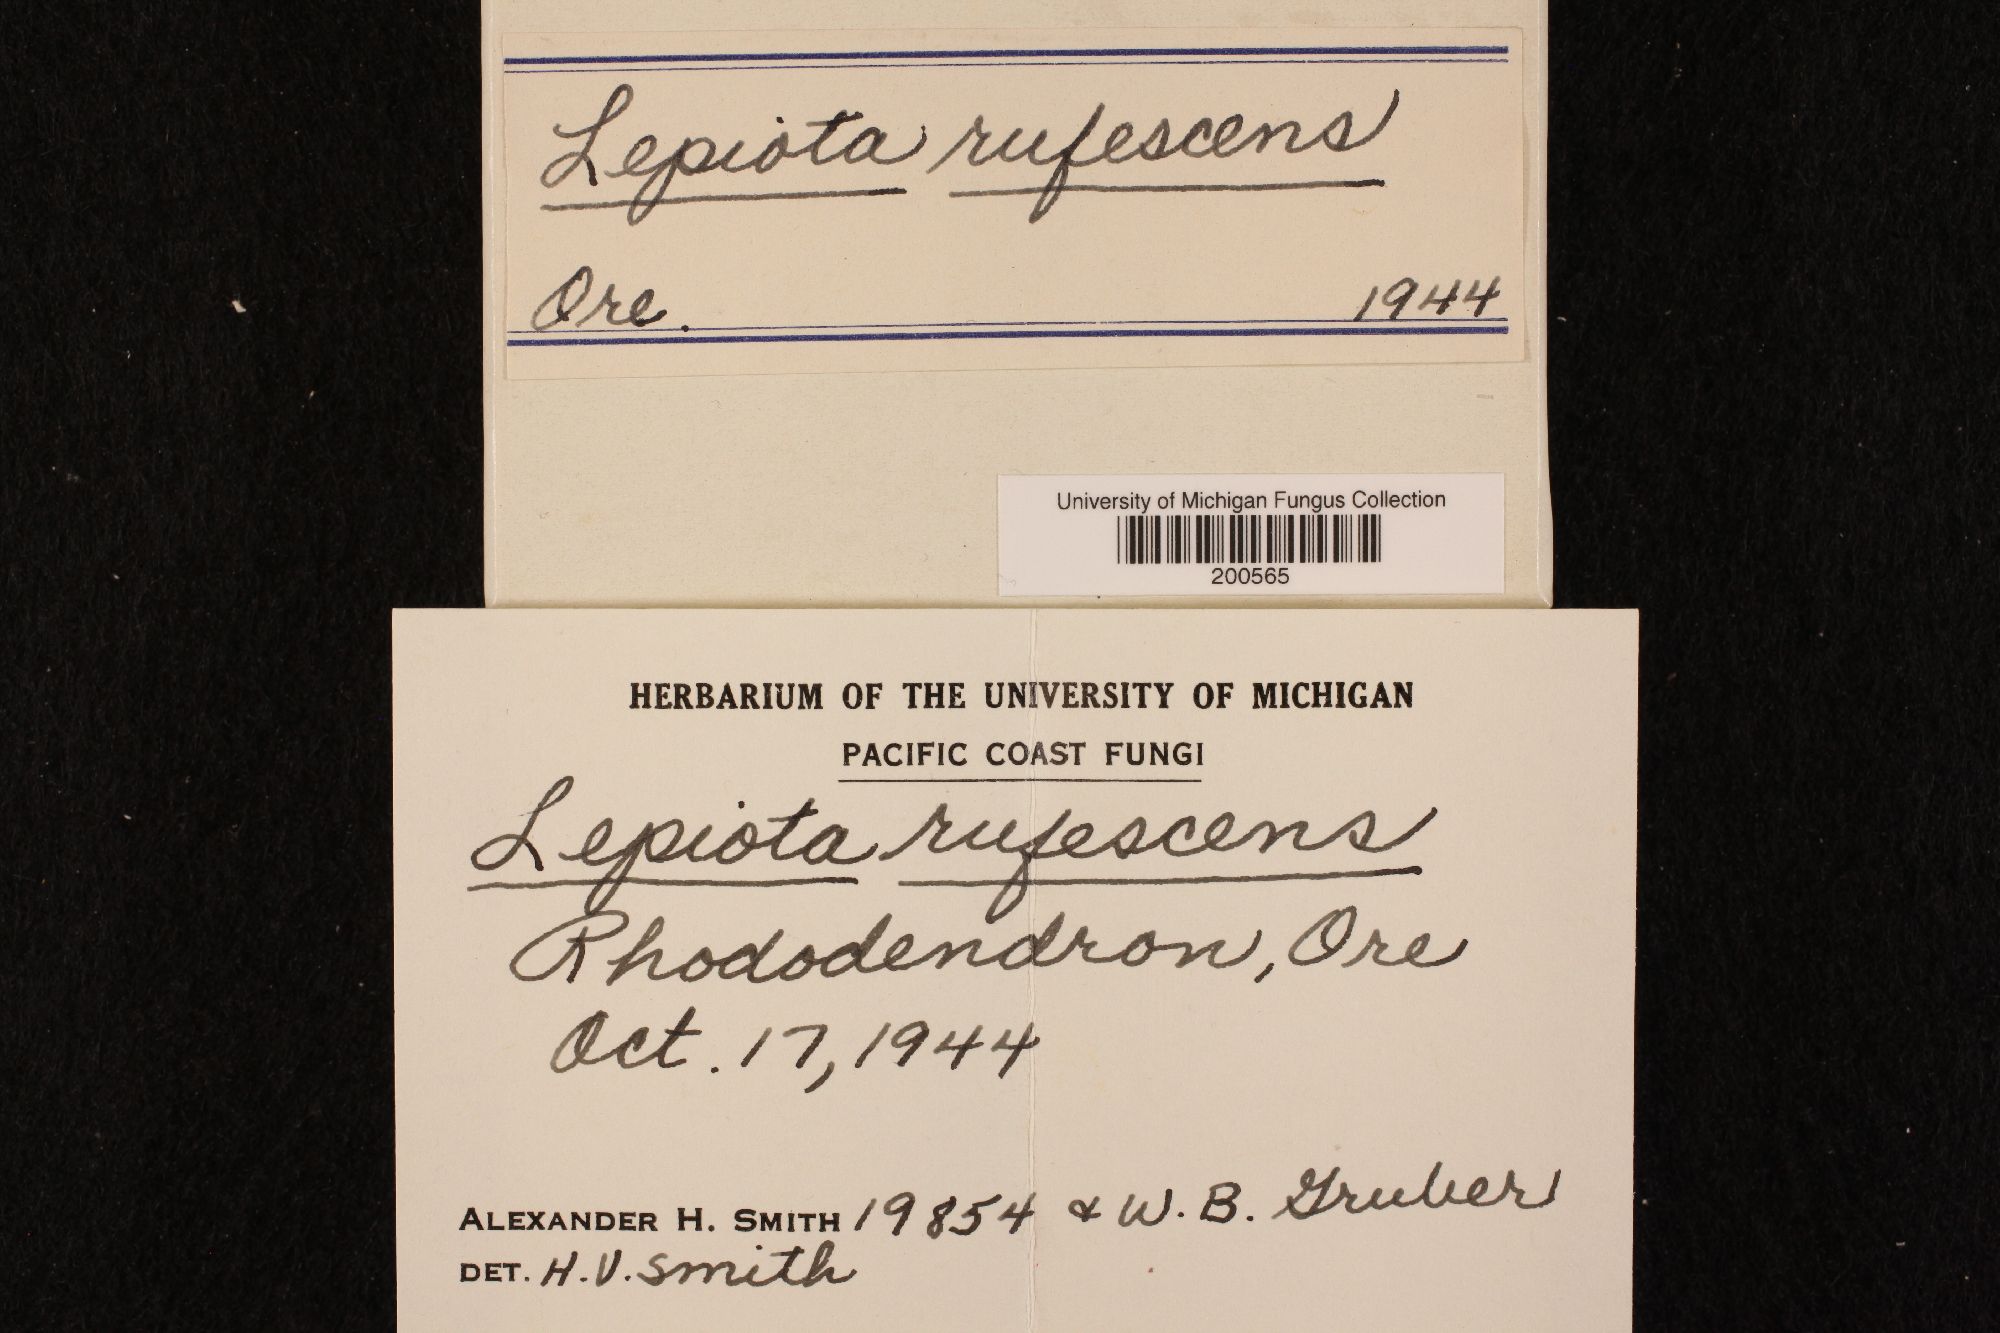 Lepiota rufescens
Ore. 1944
University of Michigan Fungus Collection
200565
HERBARIUM OF THE UNIVERSITY OF MICHIGAN
PACIFIC COAST FUNGI
Lepiota rufescens
Rhododendron, Ore
Oct. 17, 1944
ALEXANDER H. SMITH 19854 & W. B. Gruber
DET. H. V. Smith